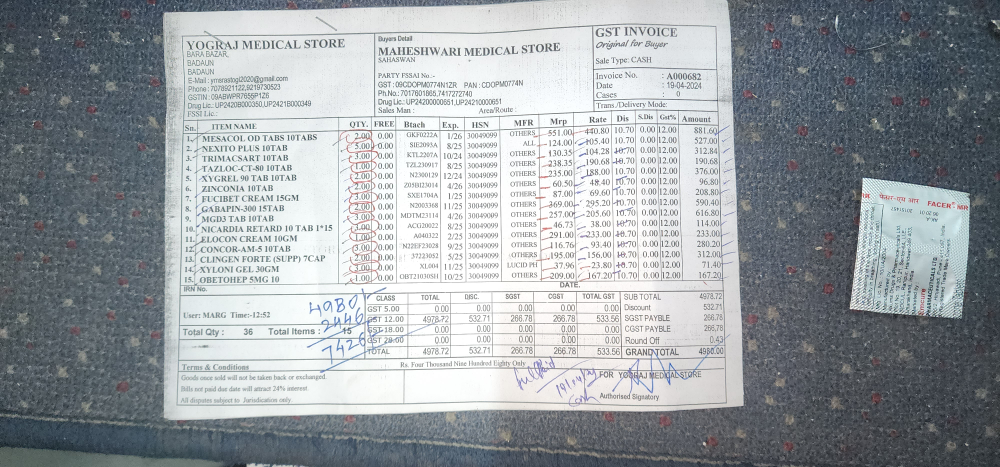 YOGRAJ MEDICAL STORE
BARA BAZAR,
BADAUN
BADAUN
E-Mail : ymsrastogi2020@gmail.com
Phone : 7078921122,9219730523
GSTIN : 09ABWPR7655P1Z6
Drug Lic.: UP2420B000350,UP2421B000349
FSSI Lic.:
Buyers Detail
MAHESHWARI MEDICAL STORE
SAHASWAN
PARTY FSSAI No.:-
GST :09CDOPM0774N1ZR PAN : CDOPM0774N
Ph.No.:7017601865,7417272740
Drug Lic.: UP24200000651,UP24210000651
Sales Man : Area/Route :
GST INVOICE
Original for Buyer
Sale Type: CASH
Invoice No. : A000682
Date : 19-04-2024
Cases : 0
Trans./Delivery Mode:
Sn. ITEM NAME QTY. FREE Btach Exp. HSN MFR Mrp Rate Dis S.Dis Gst% Amount
1. MESACOL OD TABS 10TABS 2.00 0.00 GKF0222A 1/26 30049099 OTHERS 551.00 440.80 10.70 0.00 12.00 881.60
2. NEXITO PLUS 10TAB 5.00 0.00 SIE2093A 8/25 30049099 ALL 124.00 105.40 10.70 0.00 12.00 527.00
3. TRIMACSART 10TAB 3.00 0.00 KTL2207A 10/24 30049099 OTHERS 130.35 104.28 10.70 0.00 12.00 312.84
4. TAZLOC-CT-80 10TAB 1.00 0.00 TZL230917 8/25 30049099 OTHERS 238.35 190.68 10.70 0.00 12.00 190.68
5. XYGREL 90 TAB 10TAB 2.00 0.00 N2300129 12/24 30049099 OTHERS 235.00 188.00 10.70 0.00 12.00 376.00
6. ZINCONIA 10TAB 2.00 0.00 Z05BJ23014 4/26 30049099 OTHERS 60.50 48.40 10.70 0.00 12.00 96.80
7. FUCIBET CREAM 15GM 3.00 0.00 SXE1704A 1/25 30049099 OTHERS 87.00 69.60 10.70 0.00 12.00 208.80
8. GABAPIN-300 15TAB 2.00 0.00 N2003368 11/25 30049099 OTHERS 369.00 295.20 10.70 0.00 12.00 590.40
9. MGD3 TAB 10TAB 3.00 0.00 MDTM23114 4/26 30049099 OTHERS 257.00 205.60 10.70 0.00 12.00 616.80
10. NICARDIA RETARD 10 TAB 1*15 3.00 0.00 ACG20022 8/25 30049099 OTHERS 46.73 38.00 10.70 0.00 12.00 114.00
11. ELOCON CREAM 10GM 1.00 0.00 A040322 5/25 30049099 OTHERS 291.00 233.00 10.70 0.00 12.00 233.00
12. CONCOR-AM-5 10TAB 3.00 0.00 N22EF23028 9/25 30049099 OTHERS 116.76 93.40 10.70 0.00 12.00 280.20
13. CLINGEN FORTE (SUPP) 7CAP 2.00 0.00 37223052 5/25 30049099 OTHERS 195.00 156.00 10.70 0.00 12.00 312.00
14. XYLONI GEL 30GM 3.00 0.00 XL004 11/25 30049099 LUCID PH 37.96 23.80 10.70 0.00 12.00 71.40
15. OBETOHEP 5MG 10 1.00 0.00 OBT21030SH 10/25 30049099 OTHERS 209.00 167.20 10.70 0.00 12.00 167.20
IRN No. DATE.
User: MARG Time:-12:52
Total Qty : 36 Total Items : 15
4980/-
2446
7426
CLASS TOTAL DISC. SGST CGST TOTAL GST
GST 5.00 0.00 0.00 0.00 0.00 0.00
GST 12.00 4978.72 532.71 266.78 266.78 533.56
GST 18.00 0.00 0.00 0.00 0.00 0.00
GST 28.00 0.00 0.00 0.00 0.00 0.00
TOTAL 4978.72 532.71 266.78 266.78 533.56
SUB TOTAL 4978.72
Discount 532.71
SGST PAYBLE 266.78
CGST PAYBLE 266.78
Round Off 0.43
GRAND TOTAL 4980.00
Rs. Four Thousand Nine Hundred Eighty Only
Terms & Conditions
Goods once sold will not be taken back or exchanged.
Bills not paid due date will attract 24% interest.
All disputes subject to Jurisdication only.
full Paid
19/04/24
Cash
FOR YOGRAJ MEDICAL STORE
Authorised Signatory
FACER